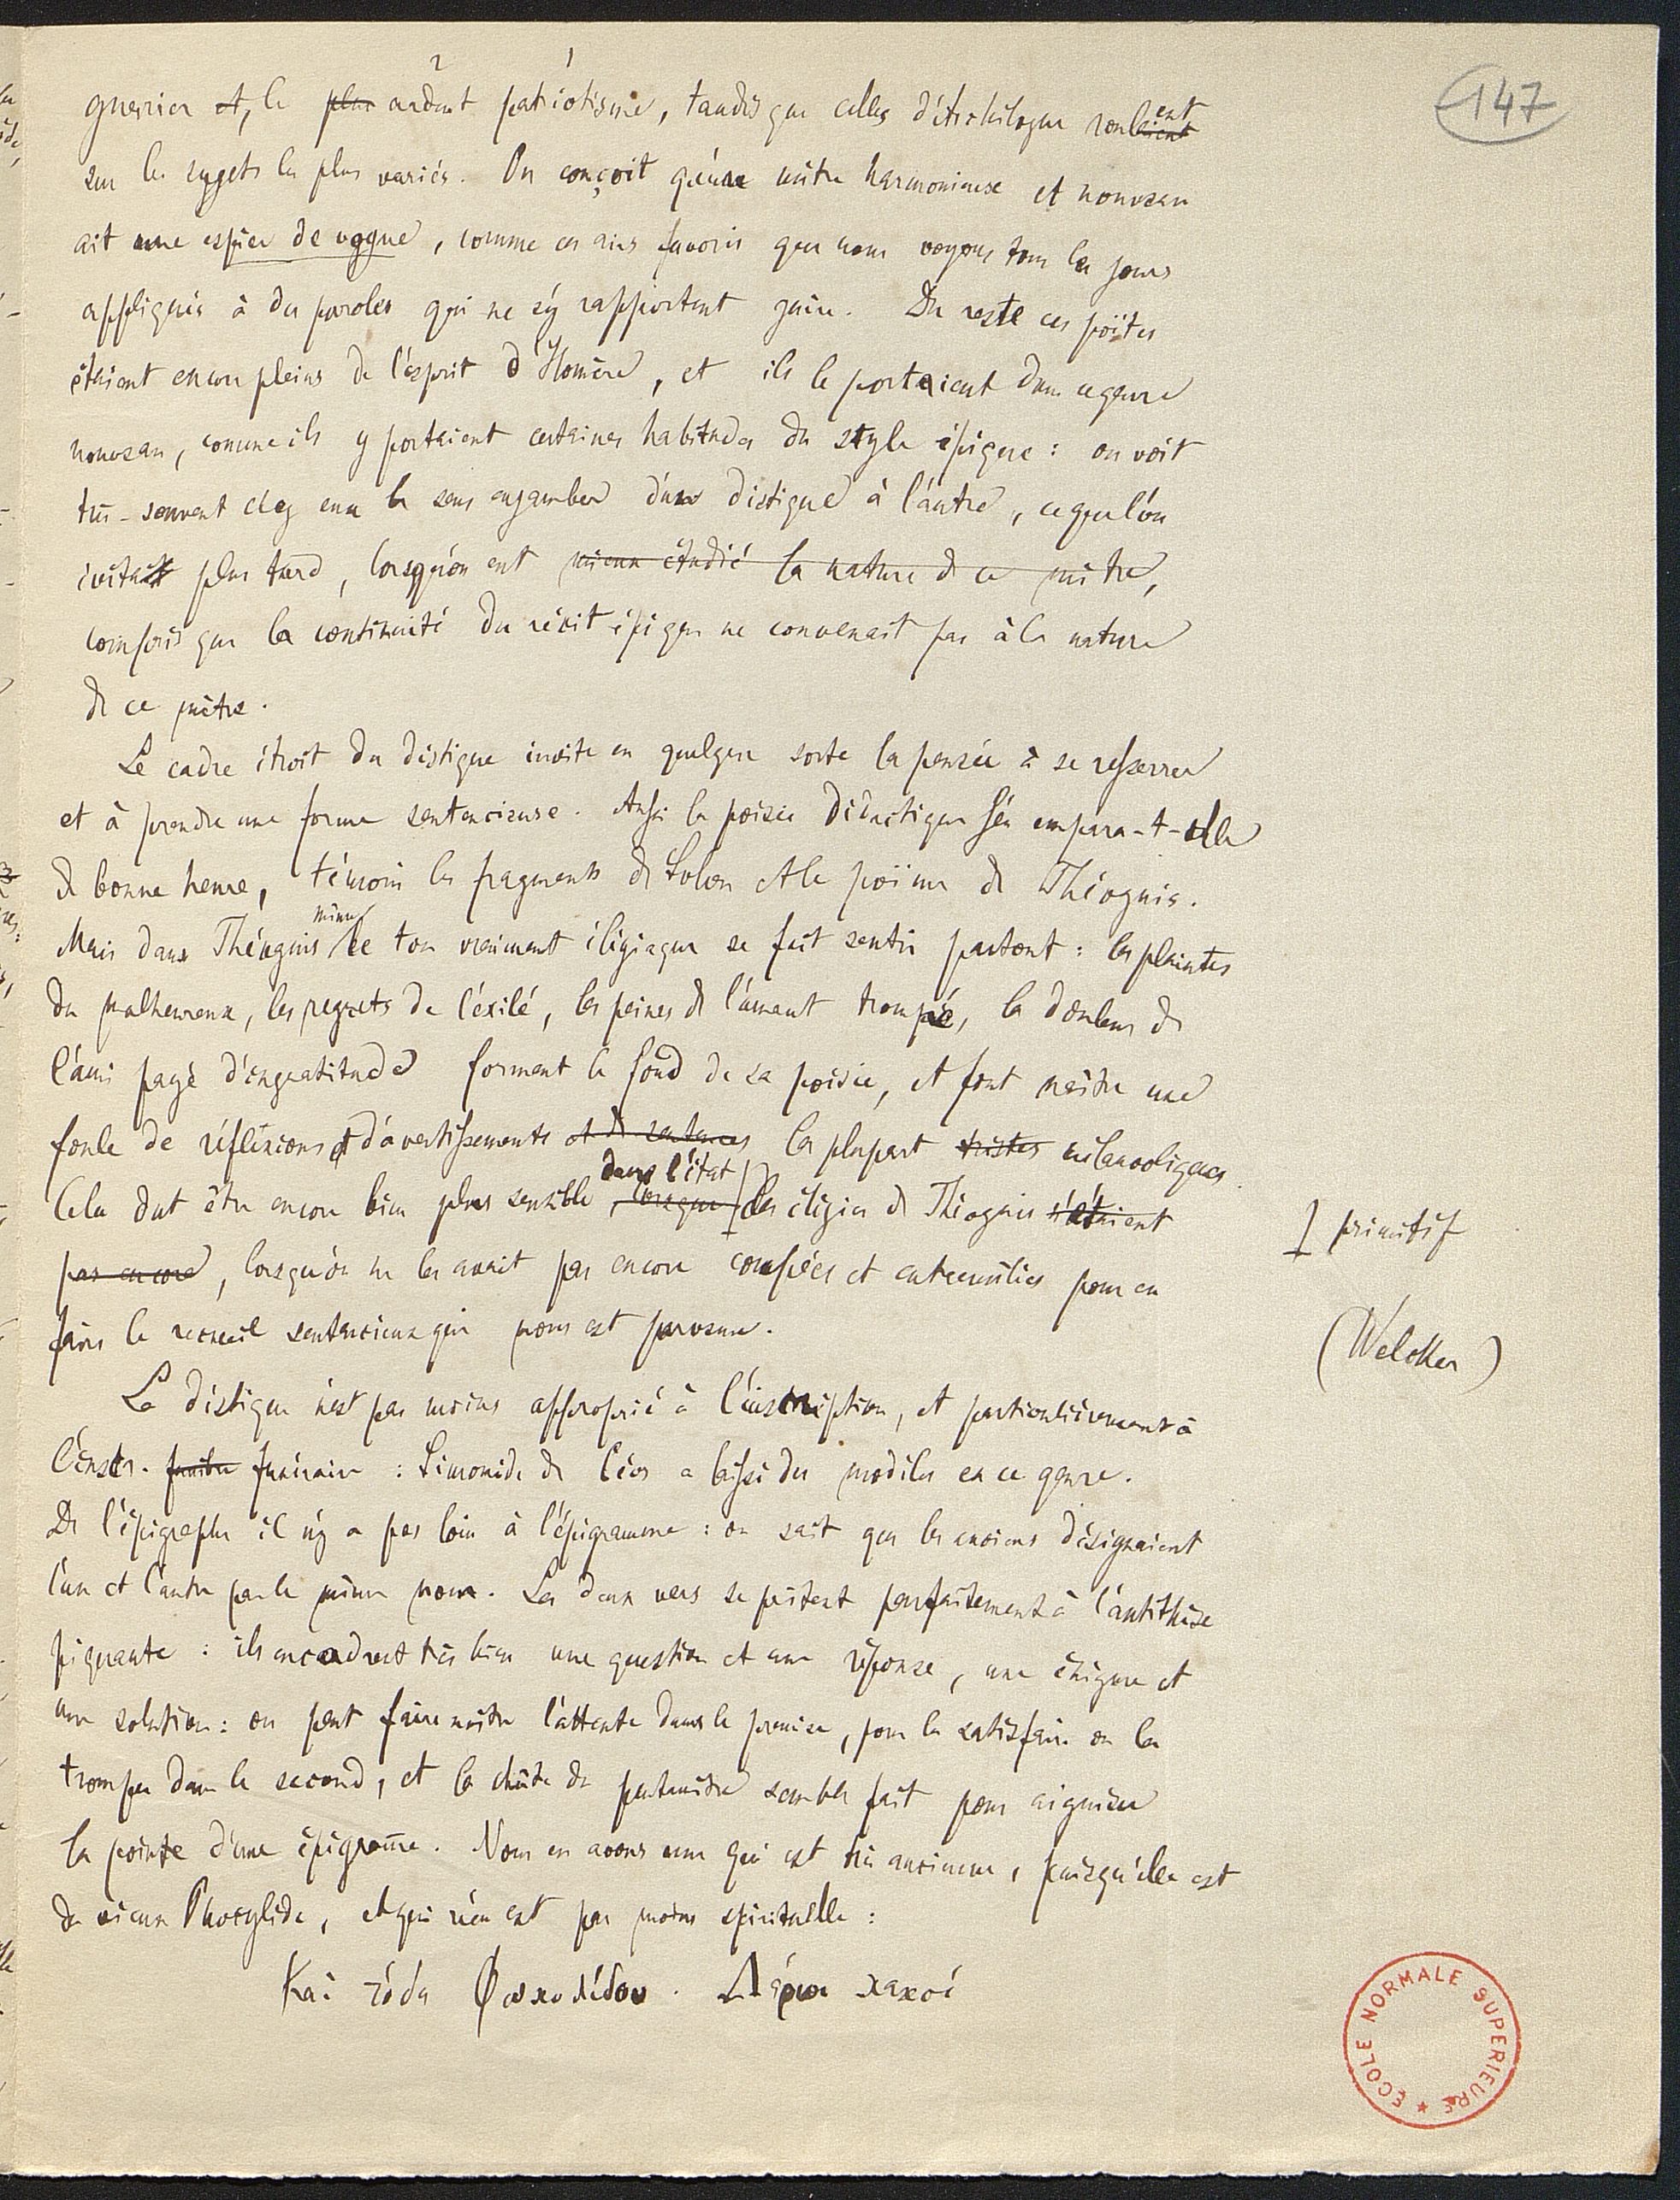 147
guerrier et, le plus ardent patriotisme, tandis que celles d'Archiloque roulent
sur les sujets les plus variés. On conçoit qu'un mètre harmonieux et nouveau
ait une espèce de vogue, comme ces airs favoris que nous voyons tous les jours
appliqués à des paroles qui ne s'y rapportent guère. Du reste ces poëtes
étaient encore pleins de l'esprit d'Homère, et ils le portaient dans ce genre
nouveau, comme ils y portaient certaines habitudes du style épique : on voit
très-souvent chez eux le sens enjamber d'un distique à l'autre, ce que l'on
évita plus tard, lorsqu'on eut mieux étudié la nature de ce mètre,
compris que la continuité du récit épique ne convenait pas à la nature
de ce mètre.
Le cadre étroit du distique invite en quelque sorte la pensée à se resserrer
et à prendre une forme sentencieuse. Aussi la poésie didactique s'en empara-t-elle
de bonne heure, témoin les fragments de Solon et le poëme de Théognis.
Mais dans Théognis même le ton vraiment élégiaque se fait sentir partout : les plaintes
du malheureux, les regrets de l'exilé, les peines de l'amant trompé, la douleur de
l'ami payé d'ingratitude forment le fond de sa poésie, et font naître une
foule de réflexions et d'avertissements et de sentences la plupart tristes mélancoliques.
Cela dut être encore bien plus sensible, lorsque dans l'état des élégies de Théognis n'étaient
primitif
pas encore, lorsqu'on ne les avait pas encore coupées et entremêlées pour en
faire le recueil sentencieux qui nous est parvenu.
(Welcker)
Le distique n'est pas moins approprié à l'inscription, et particulièrement à
l'inscr. funèbre funéraire : Simonide de Céos a laissé des modèles en ce genre.
De l'épigraphe il n'y a pas loin à l'épigramme : on sait que les anciens désignaient
l'un et l'autre par le même nom. Les deux vers se prêtent parfaitement à l'antithèse
piquante : ils encadrent très bien une question et une réponse, une énigme et
une solution : on peut faire naître l'attente dans le premier, pour la satisfaire ou la
tromper dans le second, et la chute du pentamètre semble fait pour aiguiser
la pointe d'une épigram̅e. Nous en avons une qui est très ancienne, puisqu'elle est
du vieux Phocylide, et qui n'en est pas moins spirituelle :
Καὶ τόδε Φωκυλίδου. Λέριοι κακοί
ECOLE NORMALE SUPERIEURE